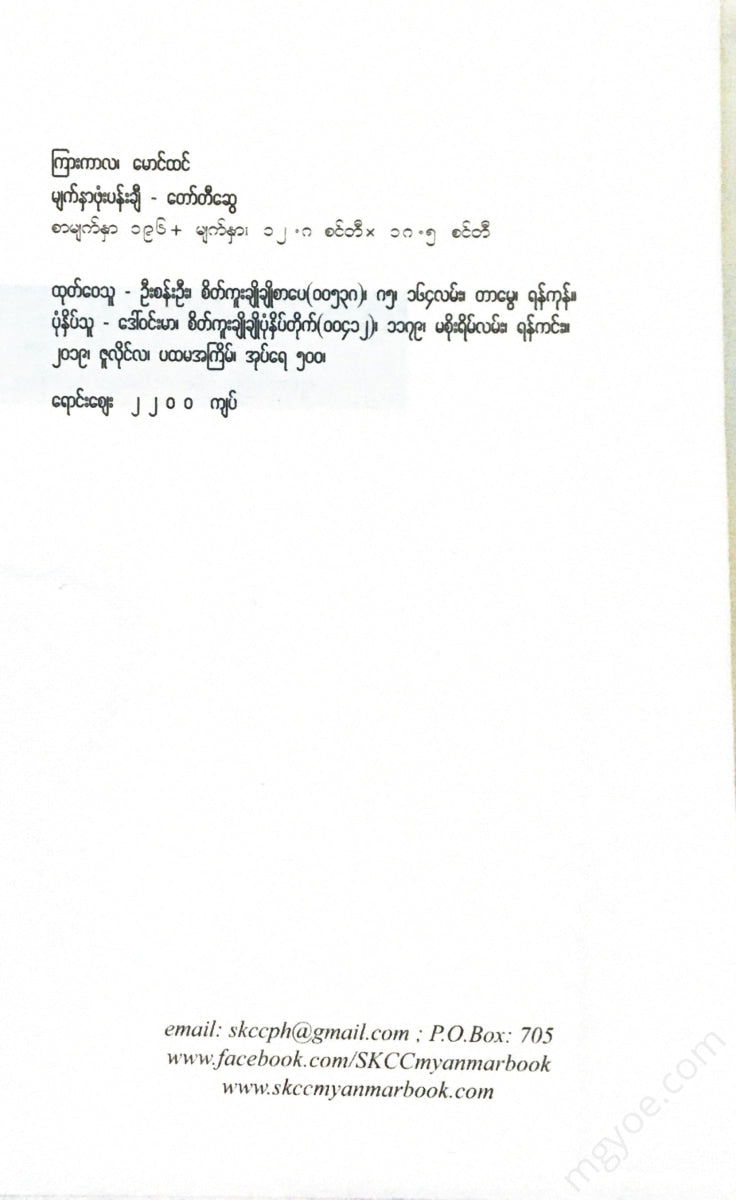 ကြားကာလ၊ မောင်ထင်
မျက်နှာဖုံးပန်းချီ - တော်တီဆွေ
စာမျက်နှာ ၁၉၆ + မျက်နှာ၊ ၁၂.၈ စင်တီ × ၁၈.၅ စင်တီ
ထုတ်ဝေသူ - ဦးစန်းဦး၊ စိတ်ကူးချိုချိုစာပေ(၀၀၅၃၈)၊ ၈၅၊ ၁၆၄လမ်း၊ တာမွေ၊ ရန်ကုန်။
ပုံနှိပ်သူ - ဒေါ်ဝင်းမာ၊ စိတ်ကူးချိုချိုပုံနှိပ်တိုက်(၀၀၄၁၂)၊ ၁၁၇၉၊ မစိုးရိမ်လမ်း၊ ရန်ကင်း။
၂၀၁၉၊ ဇူလိုင်လ၊ ပထမအကြိမ်၊ အုပ်ရေ ၅၀၀၊
ရောင်းဈေး ၂၂၀၀ ကျပ်
email: skccph@gmail.com ; P.O.Box: 705
www.facebook.com/SKCCmyanmarbook
www.skccmyanmarbook.com
mgyoe.com